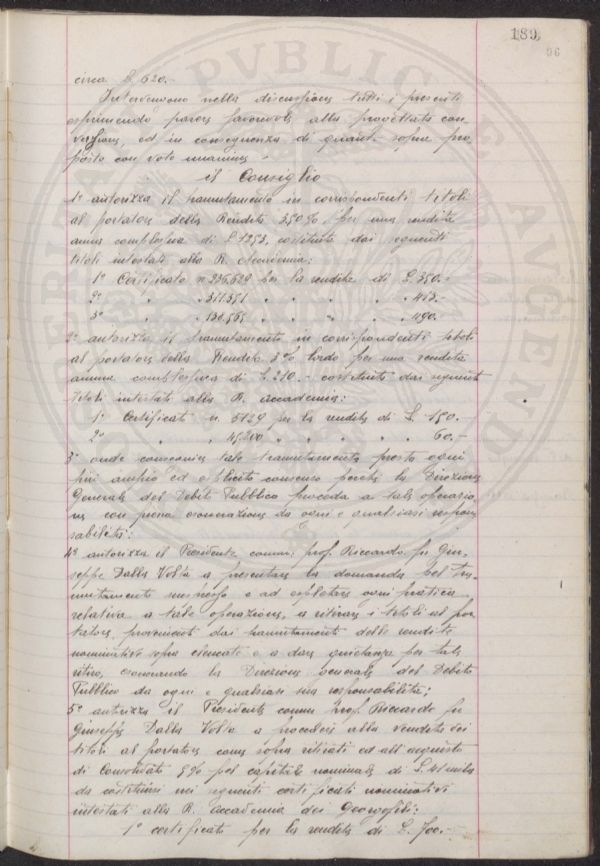 189
96
circa L. 620.-
Intervengono nella discussione tutti i presenti
esprimendo parere favorevole alla progettata con
versione, ed in conseguenza di quanto sopra pro
posto con voto unanime
il Consiglio
1° autorizza il tramutamento in corrispondenti titoli
al portatore della Rendita 3.50% per una rendita
annua complessiva di L 1253, costituita dai seguenti
titoli intestati alla R. Accademia:
1° Certificato n. 236,629 per la rendita di L. 350.-
2° " " 311.351 " " " " " 413.-
3° " " " " " " " 490.-
2° autorizza il tramutamento in corrispondenti titoli
al portatore della Rendita 3% lordo per una rendita
annua complessiva di L. 210.- costituita dai seguenti
titoli intestati alla R. Accademia:
1° Certificato n. 5129 per la rendita di L. 150.-
2° " " 45.200 " " " " 60.-
3° onde consegua tale tramutamento presta ogni
più ampio ed esplicito consenso perchè la Direzione
Generale del Debito Pubblico proceda a tale operazio
ne con piena esonerazione da ogni e qualsiasi respon
sabilità:
4° autorizza il Presidente comm: prof. Riccardo fu Giu-
seppe Dalla Volta a presentare la domanda pel tra-
mutamento suespresso e ad espletare ogni pratica
relativa a tale operazione, a ritirare i titoli al por
tatore provenienti dai tramutamenti delle rendite
nominative sopra elencate e a dare quietanza per tale
ritiro, esonerando la Direzione Generale del Debito
Pubblico da ogni e qualsiasi sua responsabilità;
5° autorizza il Presidente comm. Prof. Riccardo fu
Giuseppe Dalla Volta a procedere alla vendita dei
titoli al portatore come sopra ritirati ed all'acquisto
di Consolidato 5% pel capitale nominale di L. 41 mila
da costituirsi nei seguenti certificati nominativi
intestati alla R. Accademia dei Georgofili:
1° certificato per la rendita di L. 700.-